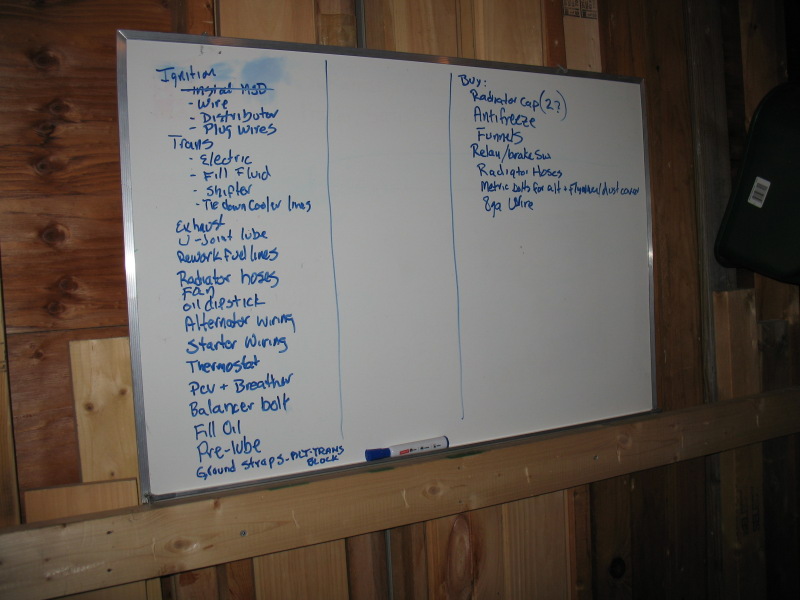 Ignition
- Instal MSD
- Wire
- Distributor
- Plug Wires
Trans
- Electric
- Fill Fluid
- Shifter
- Tie down Cooler lines
Exhaust
U-Joint lube
Rework Fuel lines
Radiator hoses
Fan
oil dipstick
Alternator Wiring
Starter Wiring
Thermostat
PCV + Breather
Balancer bolt
Fill Oil
Pre-lube
Ground straps-ALT-TRANS
BLOCK
Buy:
Radiator Cap (2?)
Antifreeze
Funnels
Relay/brake sw
Radiator Hoses
Metric bolts for alt + Flywheel/dust cover
8ga Wire